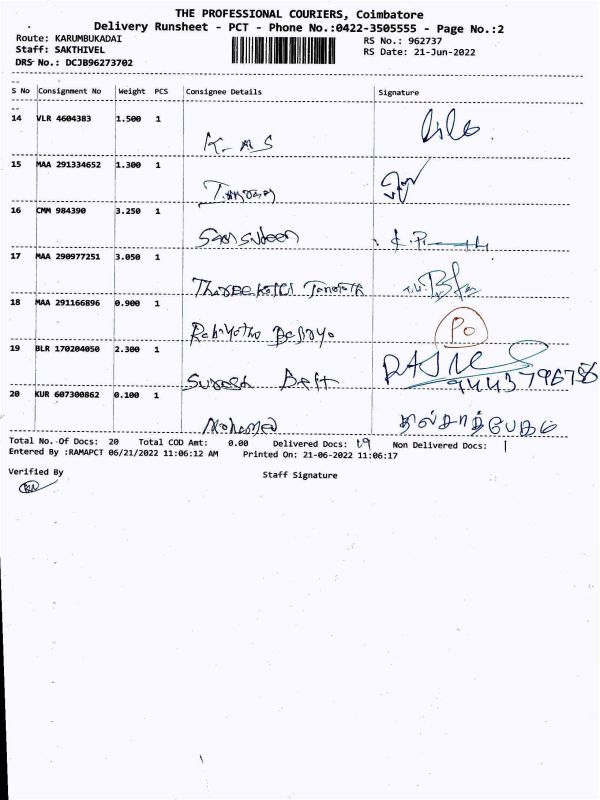 THE PROFESSIONAL COURIERS, Coimbatore
Delivery Runsheet - PCT - Phone No.:0422-3505555 - Page No.:2
Route: KARUMBUKADAI
RS No.: 962737
Staff: SAKTHIVEL
RS Date: 21-Jun-2022
DRS No.: DCJB96273702
S No Consignment No Weight PCS Consignee Details Signature
14 VLR 4604383 1.500 1
K- MS
15 MAA 291334652 1.300 1
16 CMM 984390 3.250 1
Samsudeen
17 MAA 290977251 3.050 1
18 MAA 291166896 0.900 1
PO
19 BLR 170204050 2.300 1
20 KUR 607300862 0.100 1
Mohamed
Total No. Of Docs: 20 Total COD Amt: 0.00 Delivered Docs: 19 Non Delivered Docs: 1
Entered By :RAMAPCT 06/21/2022 11:06:12 AM Printed On: 21-06-2022 11:06:17
Verified By
Staff Signature